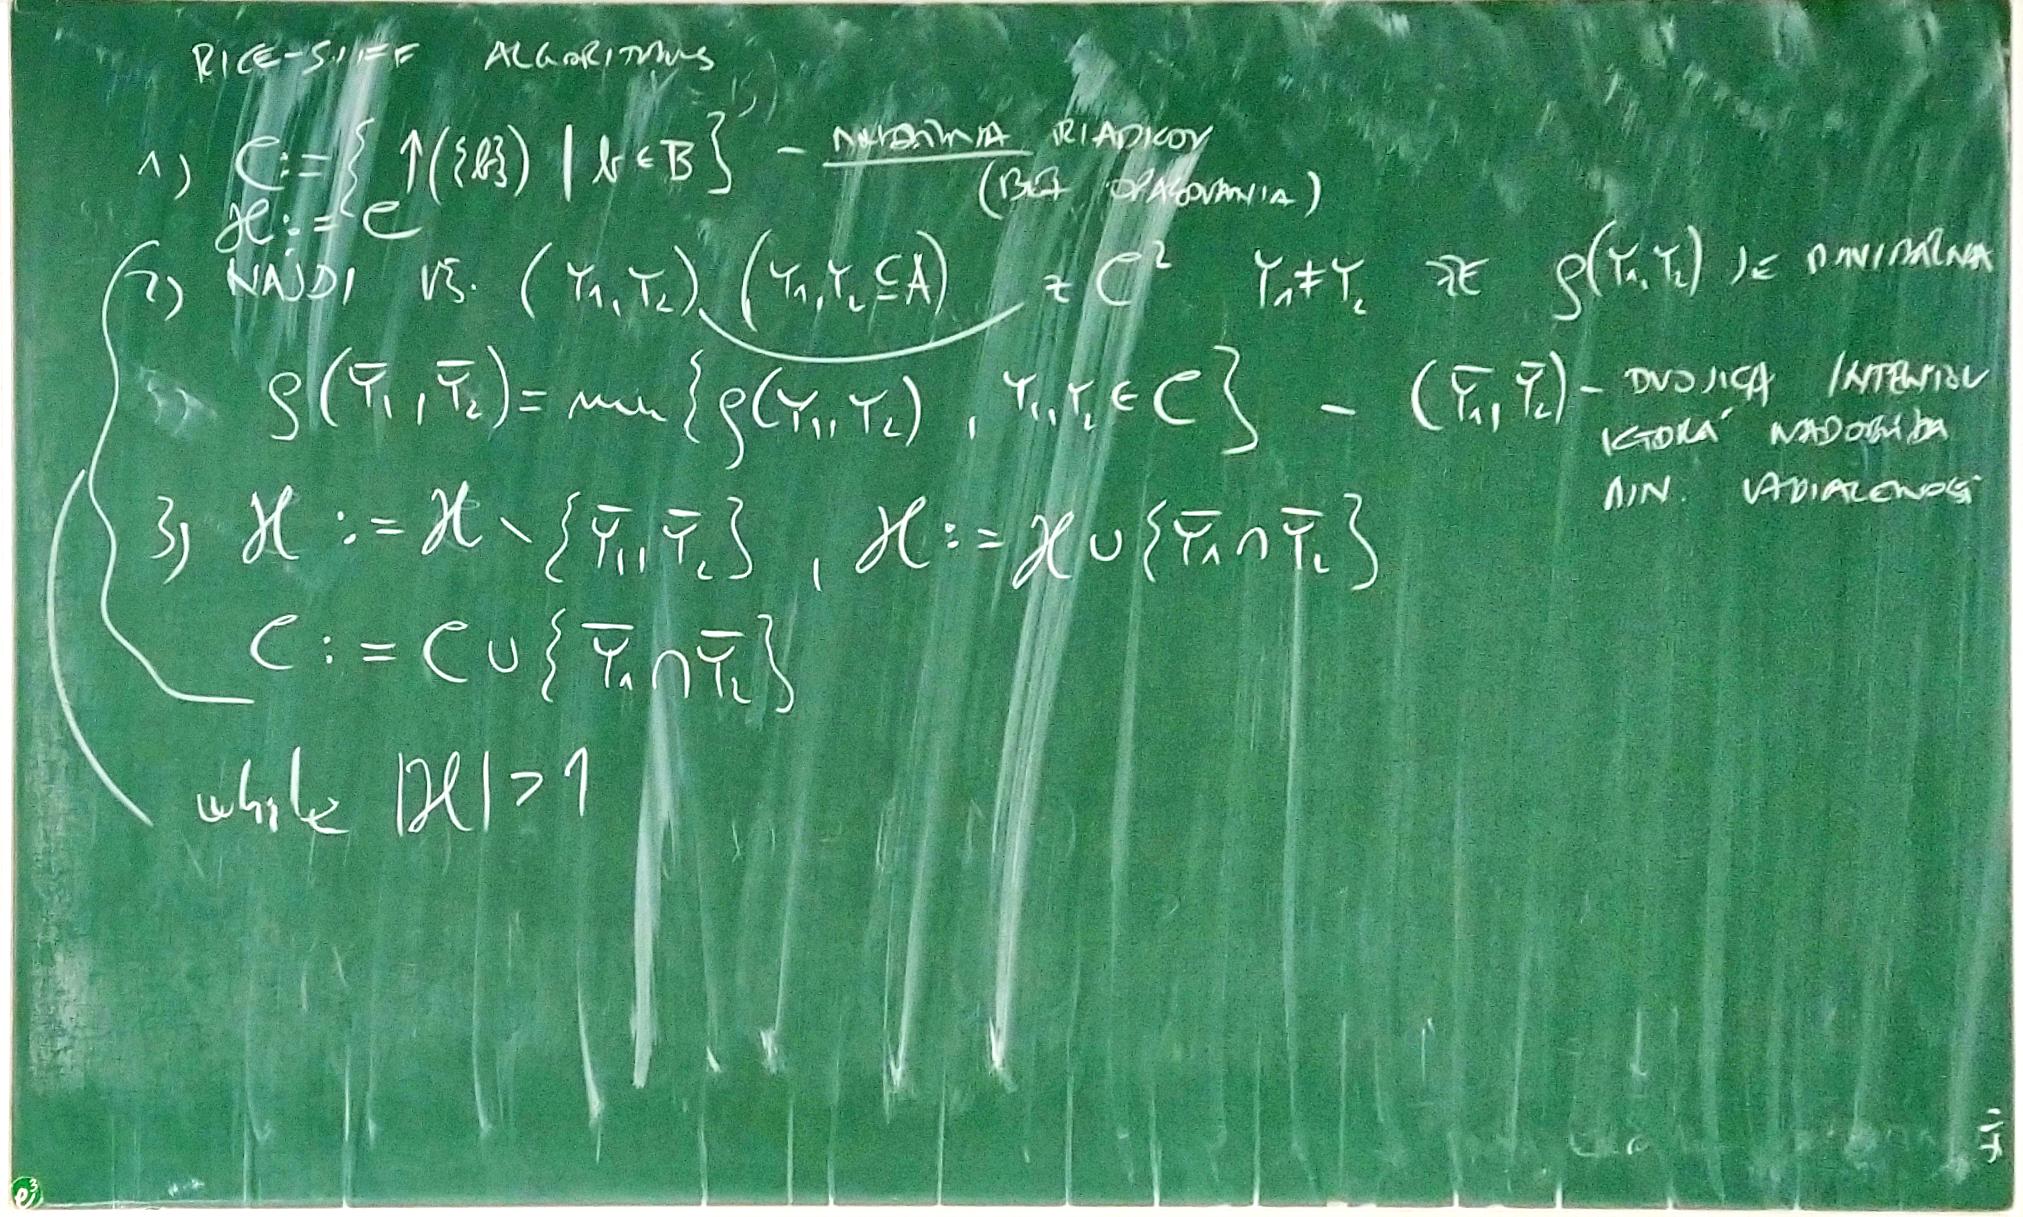 RICE-SIFF ALGORITMUS
1) C:={ ↑({b}) | b∈B} - MNOŽINA RIADKOV
(BEZ OPAKOVANIA)
ℋ:=C
2) NÁJDI VŠ. (Y₁,Y₂) (Y₁,Y₂⊆A) z C² Y₁≠Y₂ ŽE ρ(Y₁,Y₂) JE MINIMÁLNA
ρ(Ȳ₁,Ȳ₂)= min {ρ(Y₁,Y₂), Y₁,Y₂∈C} - (Ȳ₁,Ȳ₂)- DVOJICA INTENTOV
KTORÁ NADOBÚDA
MIN. VZDIALENOSŤ
3) ℋ:=ℋ∖{Ȳ₁,Ȳ₂}, ℋ:=ℋ∪{Ȳ₁∩Ȳ₂}
C:=C∪{Ȳ₁∩Ȳ₂}
while |ℋ|>1